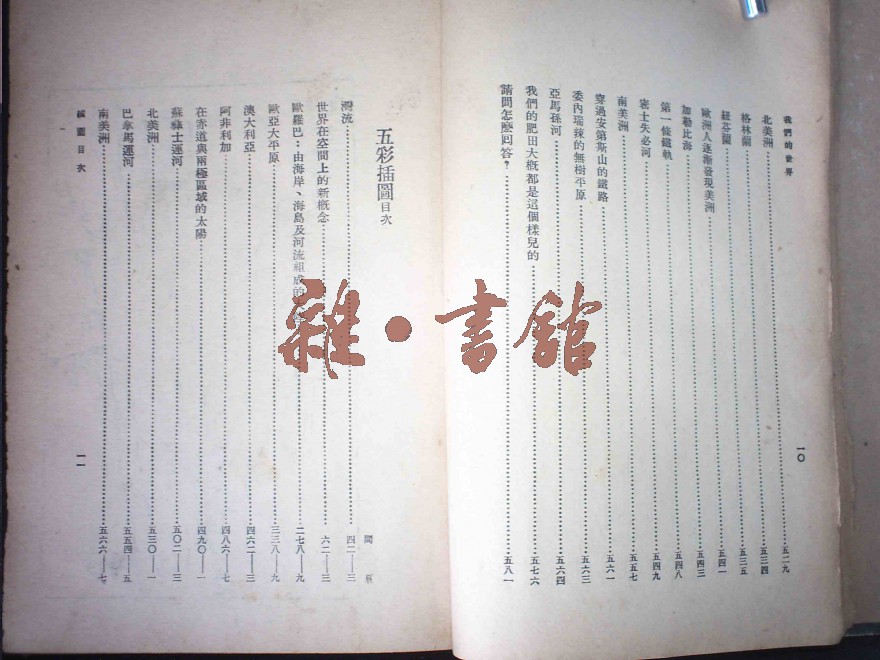 我們的世界
一〇
北美洲……五二九
格林蘭……五三四
紐芬蘭……五三五
歐洲人逐漸發現美洲……五四一
加勒比海……五四三
第一條鐵軌……五四八
密士失必河……五四九
南美洲……五五七
穿過安第斯山的鐵路……五六一
委內瑞辣的無樹平原……五六三
亞馬孫河……五六四
我們的肥田大概都是這個樣兒的……五七六
請問怎麽回答?……五八一
五彩插圖目次
灣流……四二—三
世界在空間上的新概念……六二—三
歐羅巴:由海岸、海島及河流組成的……二七八—九
歐亞大平原……三三八—九
澳大利亞……四六二—三
阿非利加……四八六—七
在赤道與兩極區域的太陽……四九〇—一
蘇彝士運河……五〇二—三
北美洲……五三〇—一
巴拿馬運河……五五四—五
南美洲……五六六—七
插圖目次
一一
雜·書館